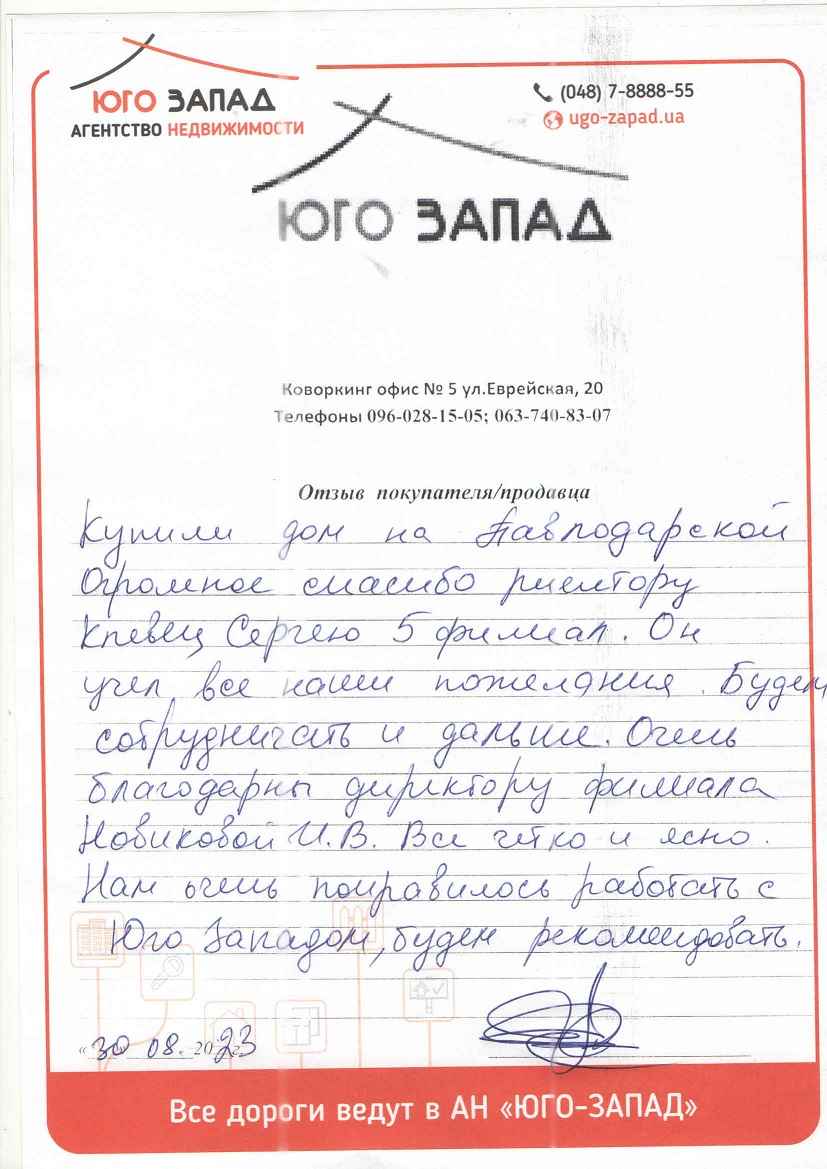 ЮГО ЗАПАД
АГЕНТСТВО НЕДВИЖИМОСТИ
(048) 7-8888-55
ugo-zapad.ua
ЮГО ЗАПАД
Коворкинг офис № 5 ул.Еврейская, 20
Телефоны 096-028-15-05; 063-740-83-07
Отзыв покупателя/продавца
Купили дом на Павлодарской
Огромное спасибо риелтору
Кпевец Сергею 5 филиал. Он
учел все наши пожелания. Будем
сотрудничать и дальше. Очень
благодарны директору филиала
Новиковой И.В. Все четко и ясно.
Нам очень понравилось работать с
Юго Западом, будем рекомендовать.
«30» 08. 2023
Все дороги ведут в АН «ЮГО-ЗАПАД»